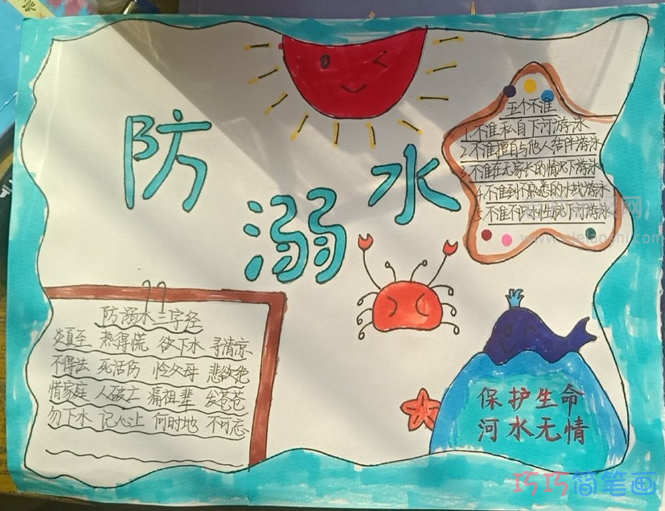 防溺水
五个不准
1.不准私自下河游泳
2.不准擅自与他人结伴游泳
3.不准在无家长的情况下游泳
4.不准到不熟悉的水域游泳
5.不准不识水性就下河游泳
防溺水三字经
炎夏至 热得慌 欲下水 寻清凉
不得法 死活伤 怜父母 悲欲绝
惜家庭 人破亡 痛祖辈
勿下水 记心上 何时地 不可忘
保护生命
河水无情
巧巧简笔画